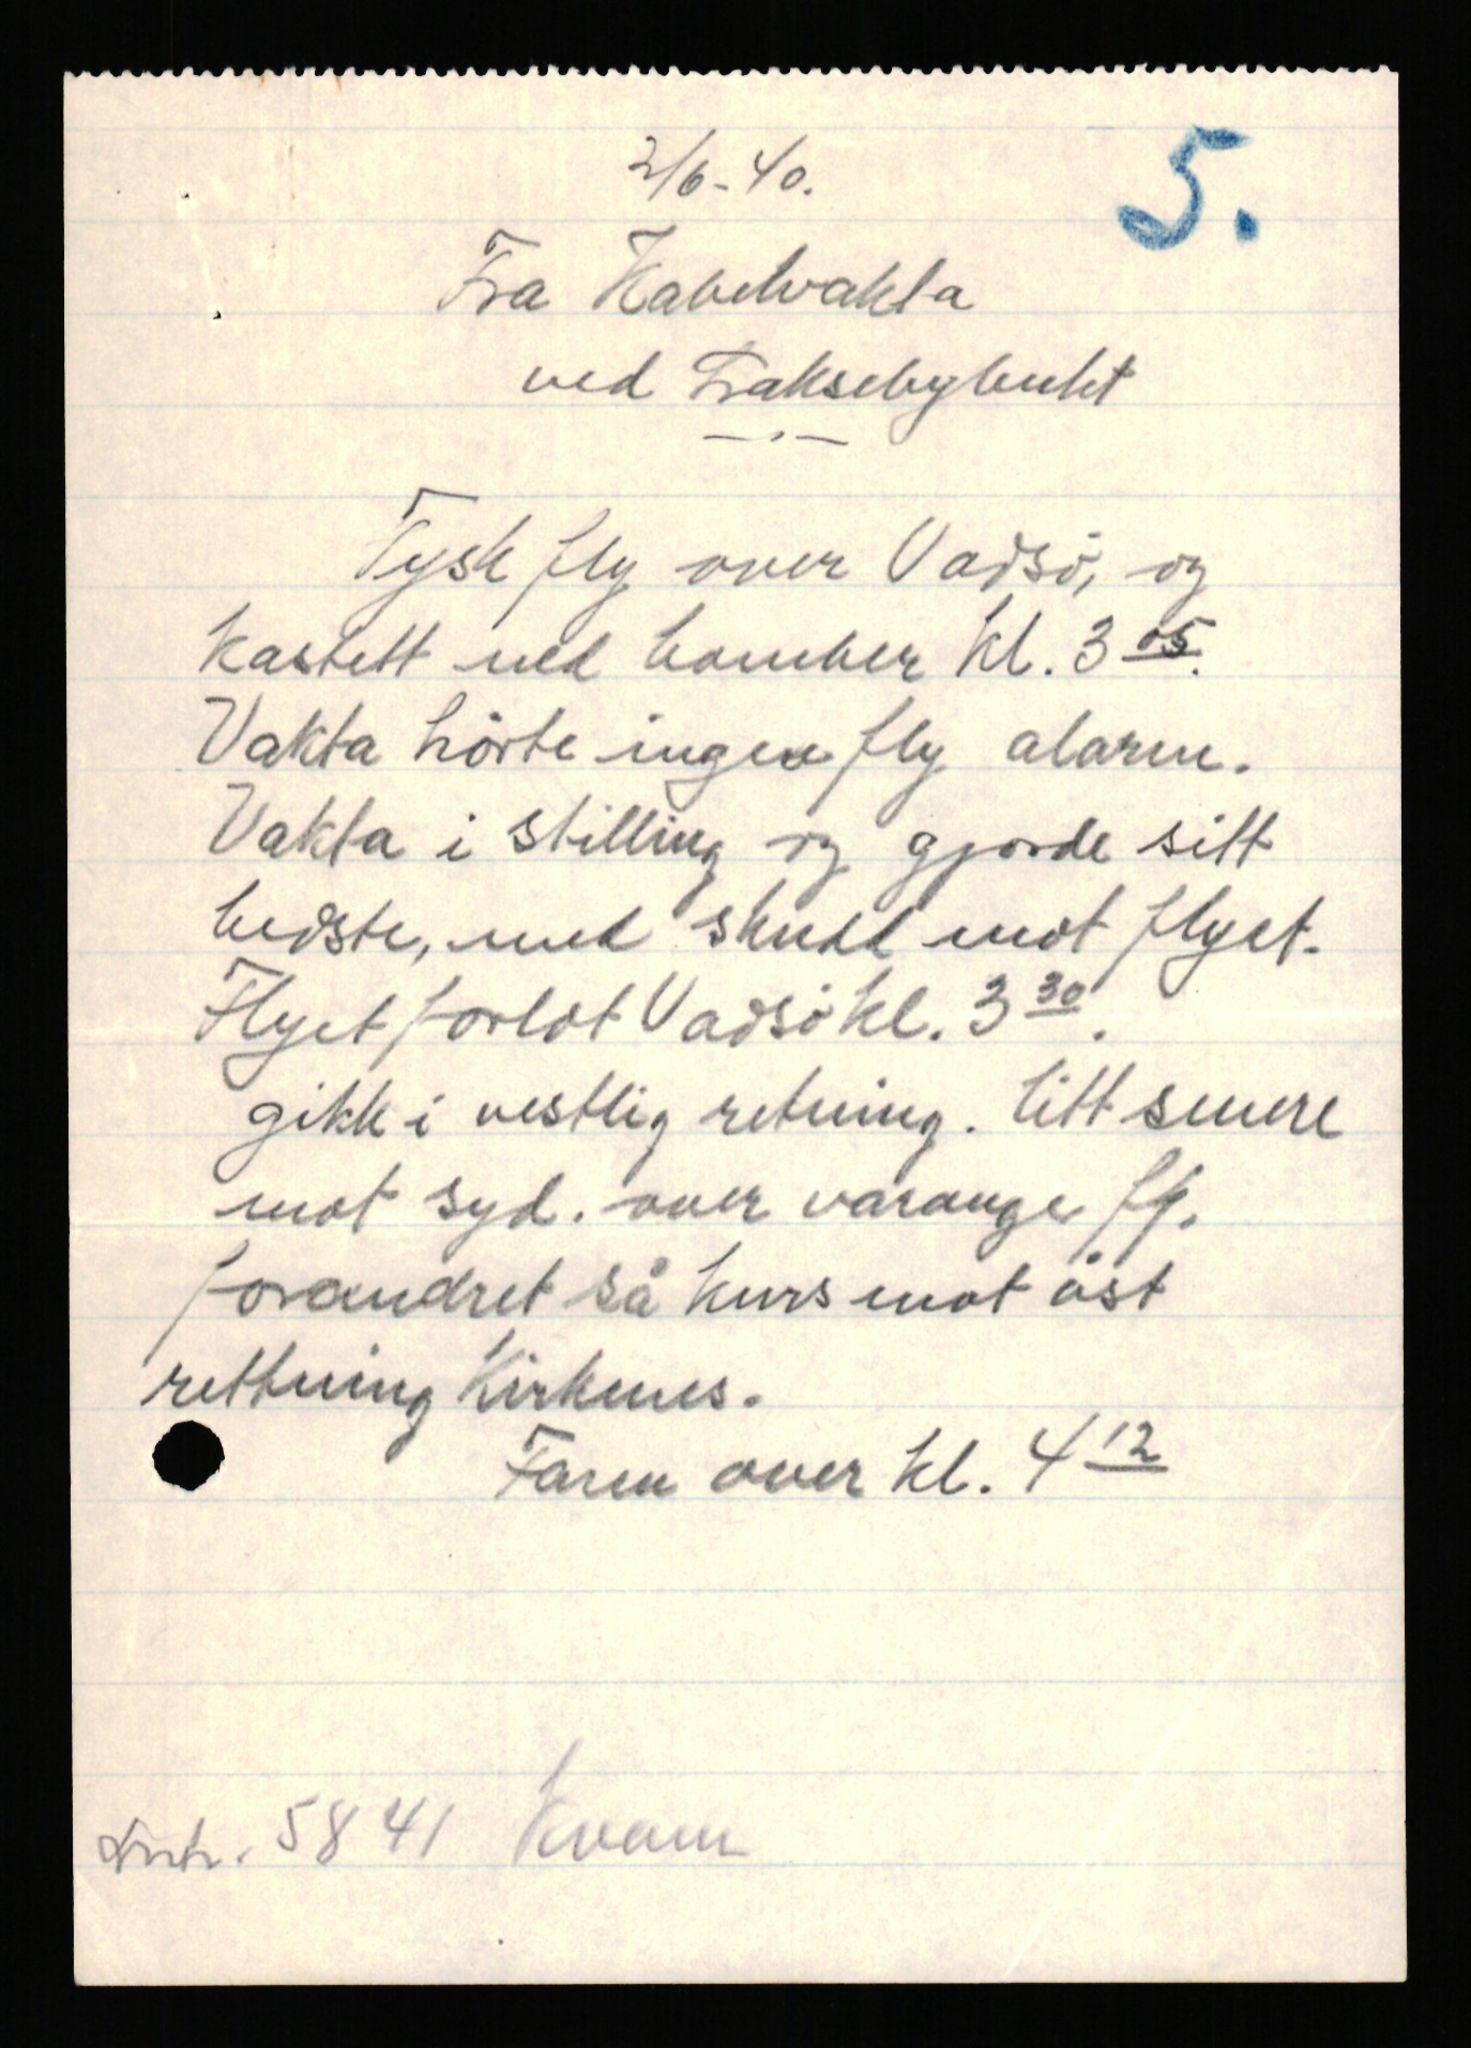 2/6-40.
5.
Fra Kabelvakta
ved Fraksebybukt
Tysk fly over Vadsö, og
kastett ned bomber kl. 3 05.
Vakta hörte ingen fly alarm.
Vakta i stilling og gjorde sitt
bedste, med skudd mot flyet.
Flyet forlot Vadsö kl. 3 30.
gikk i vestlig retning. litt senere
mot syd. over varange fj.
forandret så kurs mot öst
rettning Kirkenes.
Faren over kl. 4 12
5841 Kvam